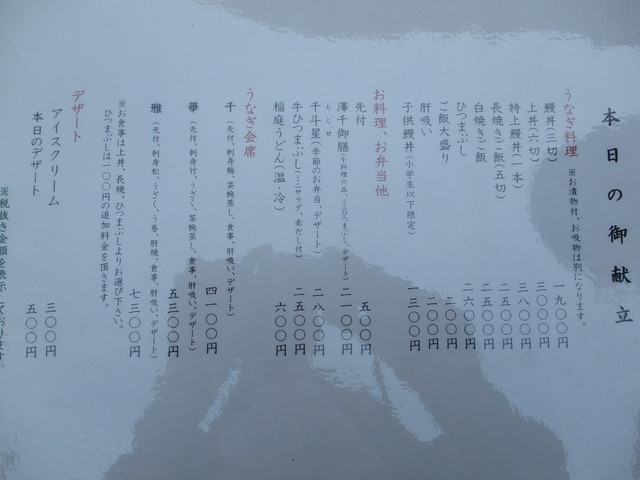 本日の御献立
うなぎ料理 ※お漬物付、お吸物は別になります。
鰻丼(三切) 一九〇〇円
上丼(六切) 三〇〇〇円
特上鰻丼(一本) 三八〇〇円
長焼きご飯(五切) 二五〇〇円
白焼きご飯 二五〇〇円
ひつまぶし 二六〇〇円
ご飯大盛り 二〇〇円
肝吸い 二〇〇円
子供鰻丼(小学生以下限定) 一三〇〇円
お料理、お弁当他
先付 五〇〇円
澤千御膳(小料理六品、ミニひつまぶし、デザート) 二一〇〇円
千斗星(季節のお弁当、デザート) 二八〇〇円
もとせ
牛ひつまぶし(ミニサラダ、赤だし付) 二五〇〇円
稲庭うどん(温・冷) 六〇〇円
うなぎ会席
千(先付、刺身梅、茶椀蒸し、食事、肝吸い、デザート) 四一〇〇円
華(先付、刺身竹、うざく、茶椀蒸し、食事、肝吸い、デザート) 五三〇〇円
雅(先付、刺身松、うざく、う巻、肝焼、食事、肝吸い、デザート) 七三〇〇円
※お食事は上丼、長焼、ひつまぶしよりお選び下さい。
ひつまぶしは一〇〇円の追加料金を頂きます。
デザート
アイスクリーム 三〇〇円
本日のデザート 五〇〇円
※税抜き金額を表示しております。